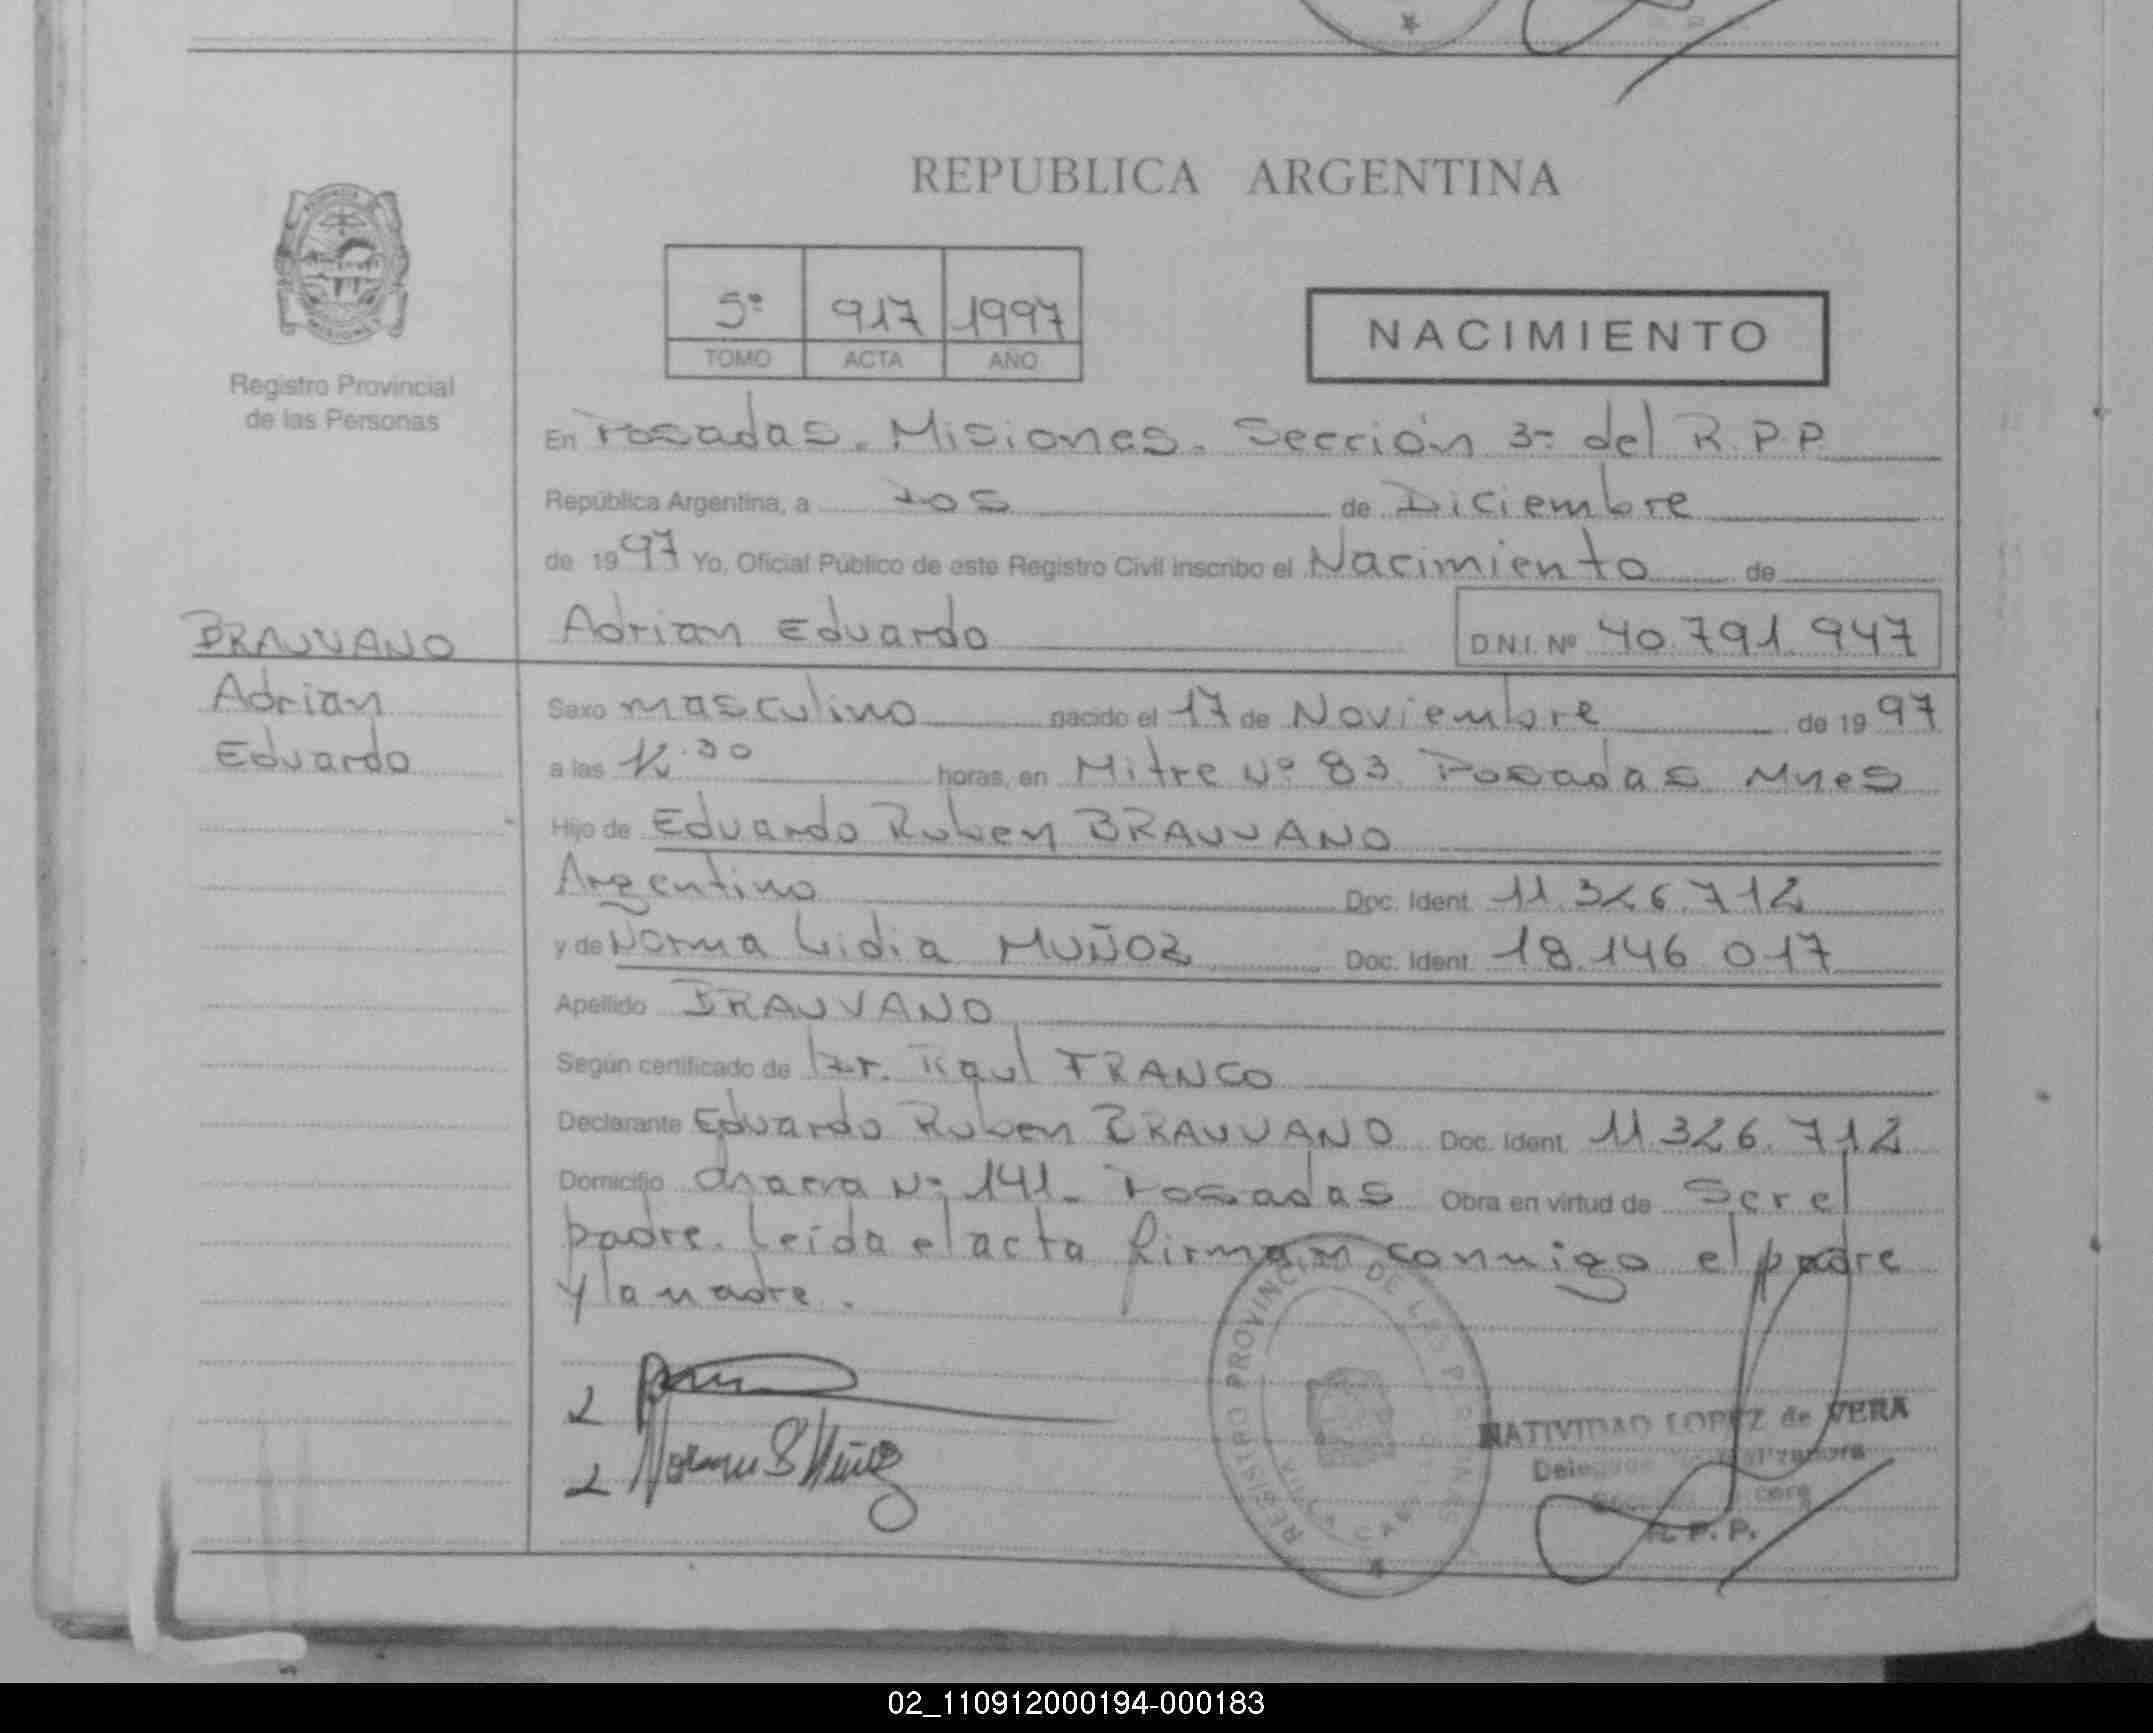 REPUBLICA ARGENTINA
5º 917 1997
TOMO ACTA AÑO
NACIMIENTO
Registro Provincial
de las Personas
En Posadas. Misiones. Sección 3ª del R.P.P.
República Argentina, a dos de Diciembre
de 1997 Yo, Oficial Público de este Registro Civil inscribo el Nacimiento de
Adrian Eduardo D.N.I. Nº 40.791.947
BRAUVANO
Adrian
Eduardo
Sexo masculino nacido el 17 de Noviembre de 1997
a las 12.30 horas, en Mitre Nº 83 Posadas Mnes
Hijo de Eduardo Ruben BRAUVANO
Argentino Doc. Ident. 11.326.712
y de Norma Lidia MUÑOZ Doc. Ident. 18.146.017
Apellido BRAUVANO
Según certificado de Dr. Raul FRANCO
Declarante Eduardo Ruben BRAUVANO Doc. Ident. 11.326.712
Domicilio chacra Nº 141. Posadas Obra en virtud de Ser el
padre. Leída el acta firman conmigo el padre
y la madre.
REGISTRO PROVINCIAL DE LAS PERSONAS
NATIVIDAD LOPEZ de VERA
R.P.P.
02_110912000194-000183